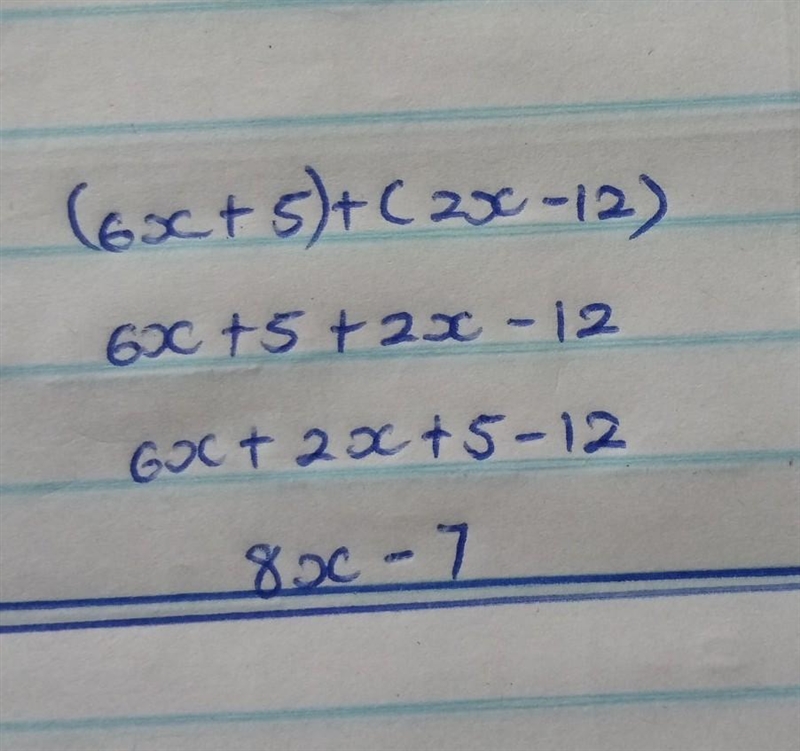 (6x+5)+(2x-12)
6x+5+2x-12
6x+2x+5-12
8x-7